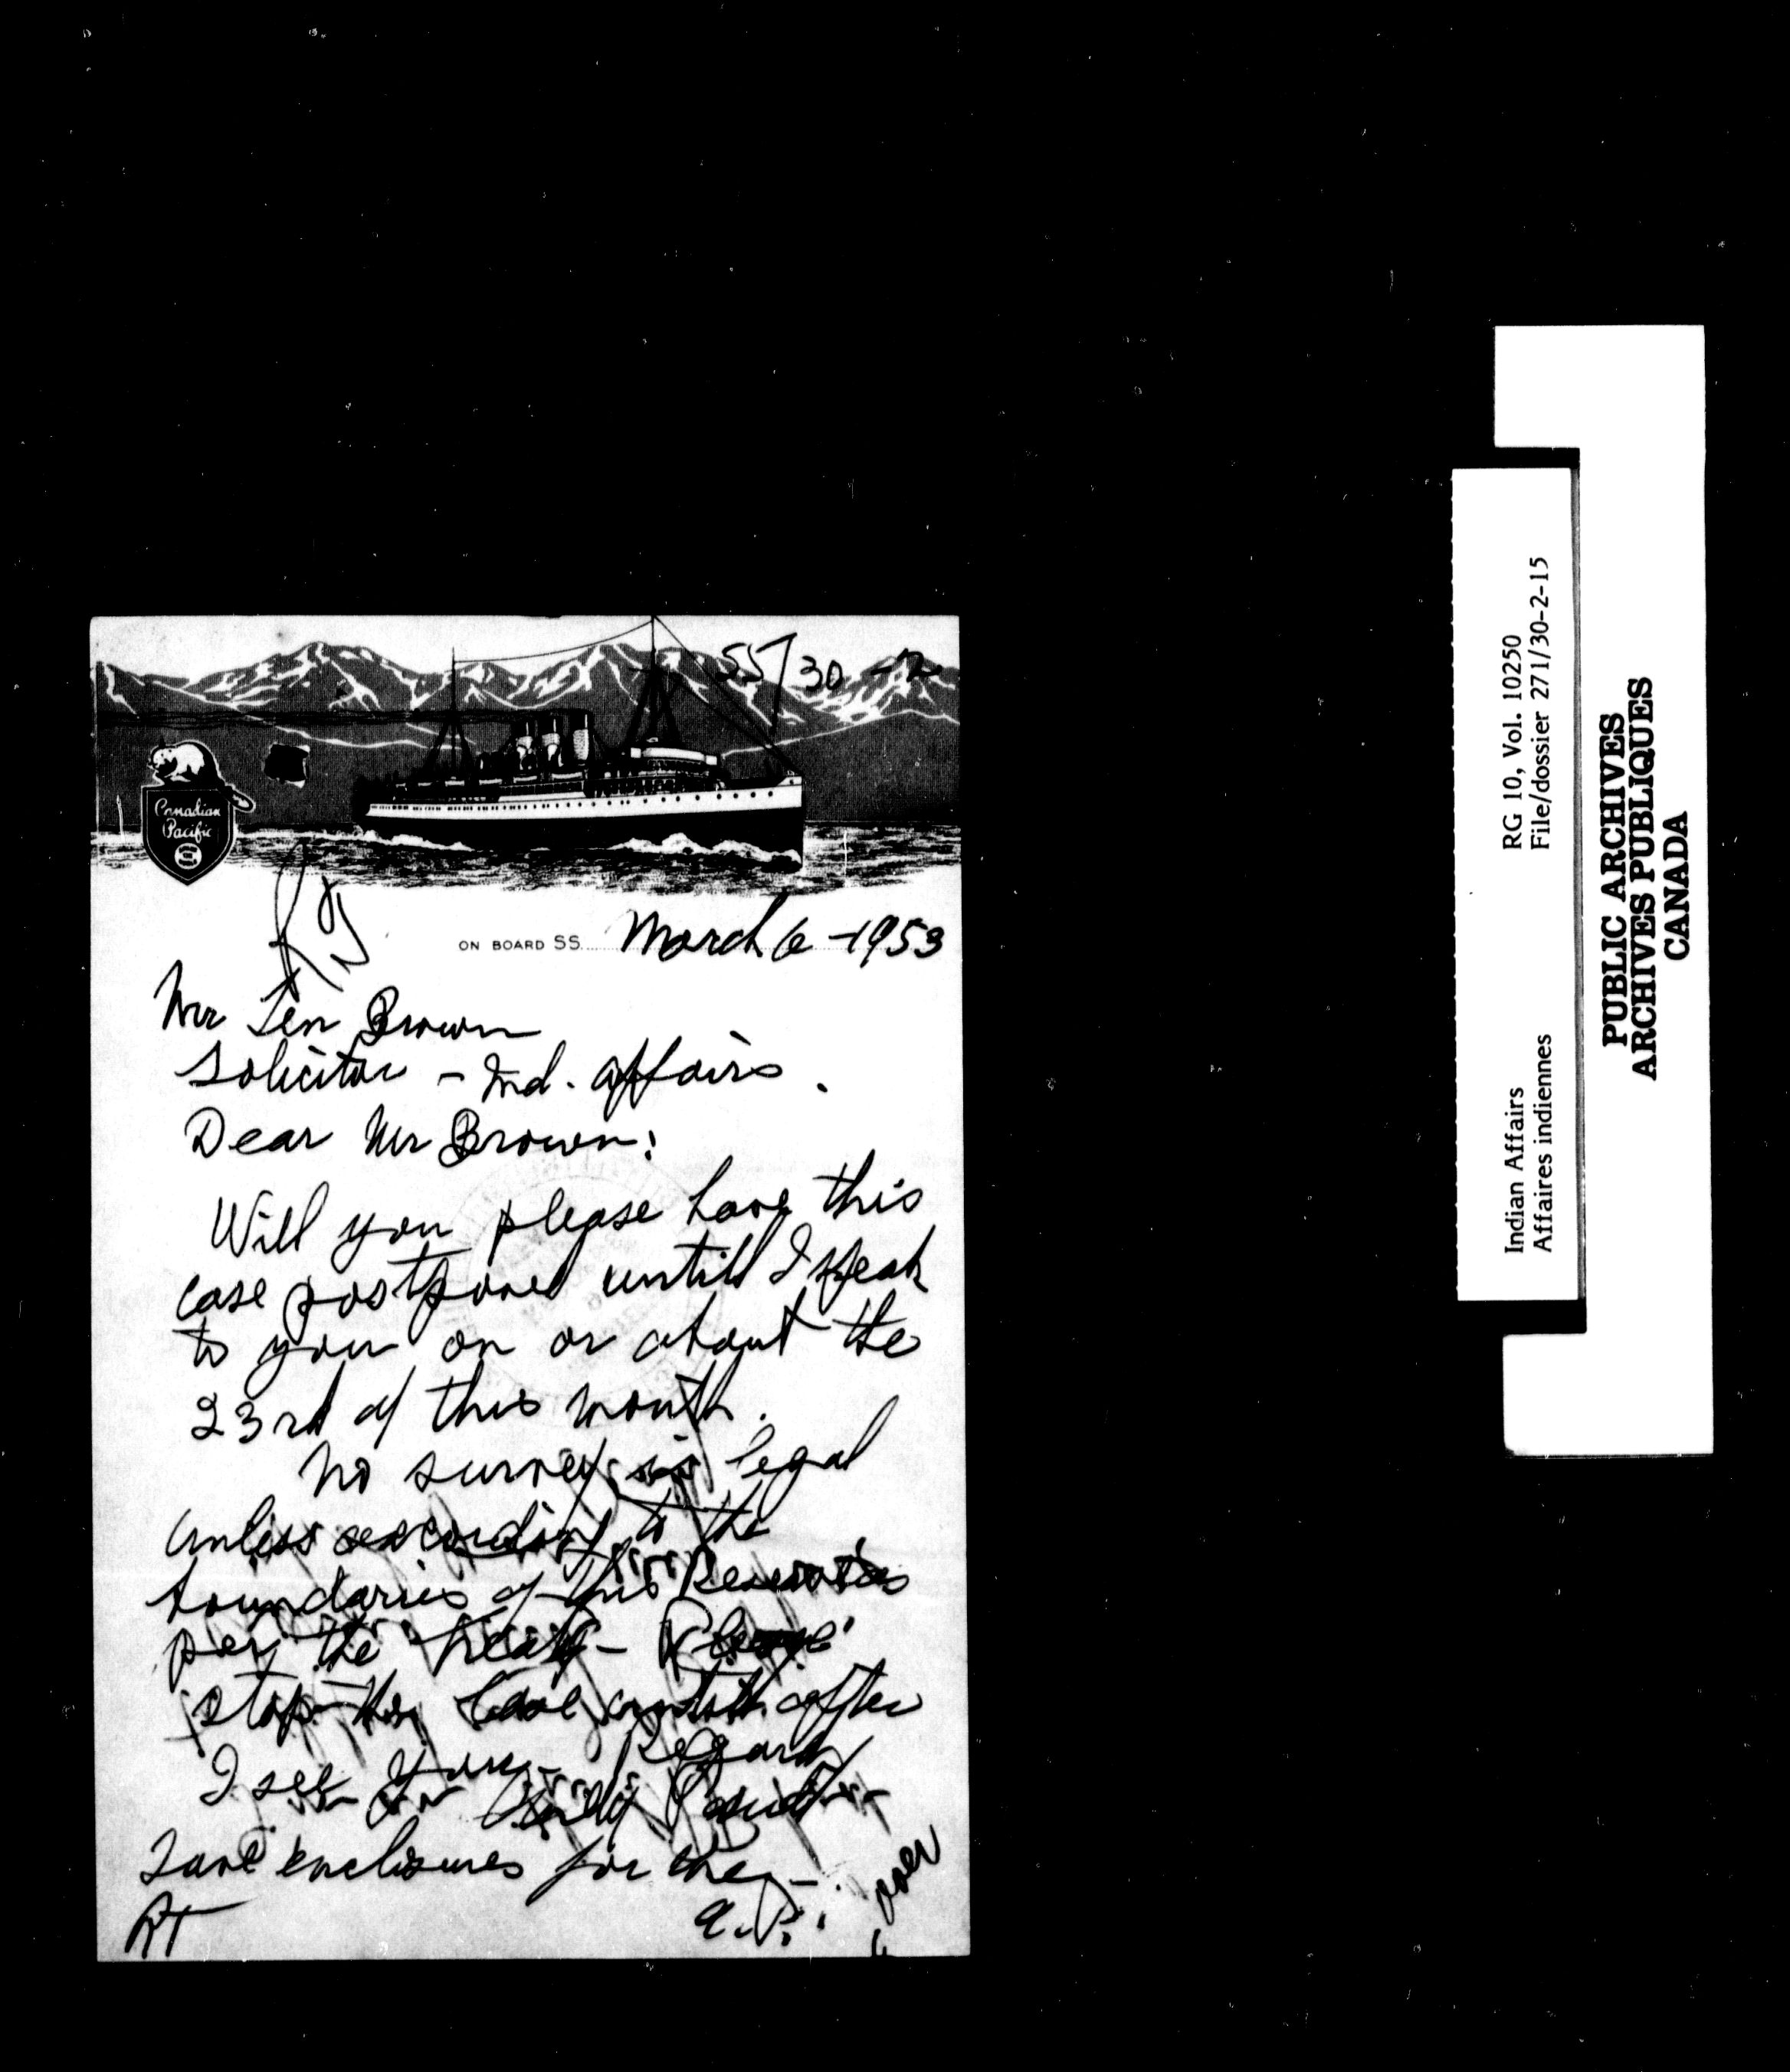 55/30-2
Canadian
Pacific
ON BOARD SS. March 6-1953
Mr Len Brown
Solicitor - Ind. Affairs.
Dear Mr Brown:
Will you please have this
case postponed untill I speak
to you on or about the
23rd of this month.
No survey is legal
unless according to the
boundaries of this
per the treaty - Please
stop the case untill after
I see you - Regards
Andy Paull
Save enclosures for me -
A.P.
over
Indian Affairs RG 10, Vol. 10250
Affaires indiennes File/dossier 271/30-2-15
PUBLIC ARCHIVES
ARCHIVES PUBLIQUES
CANADA